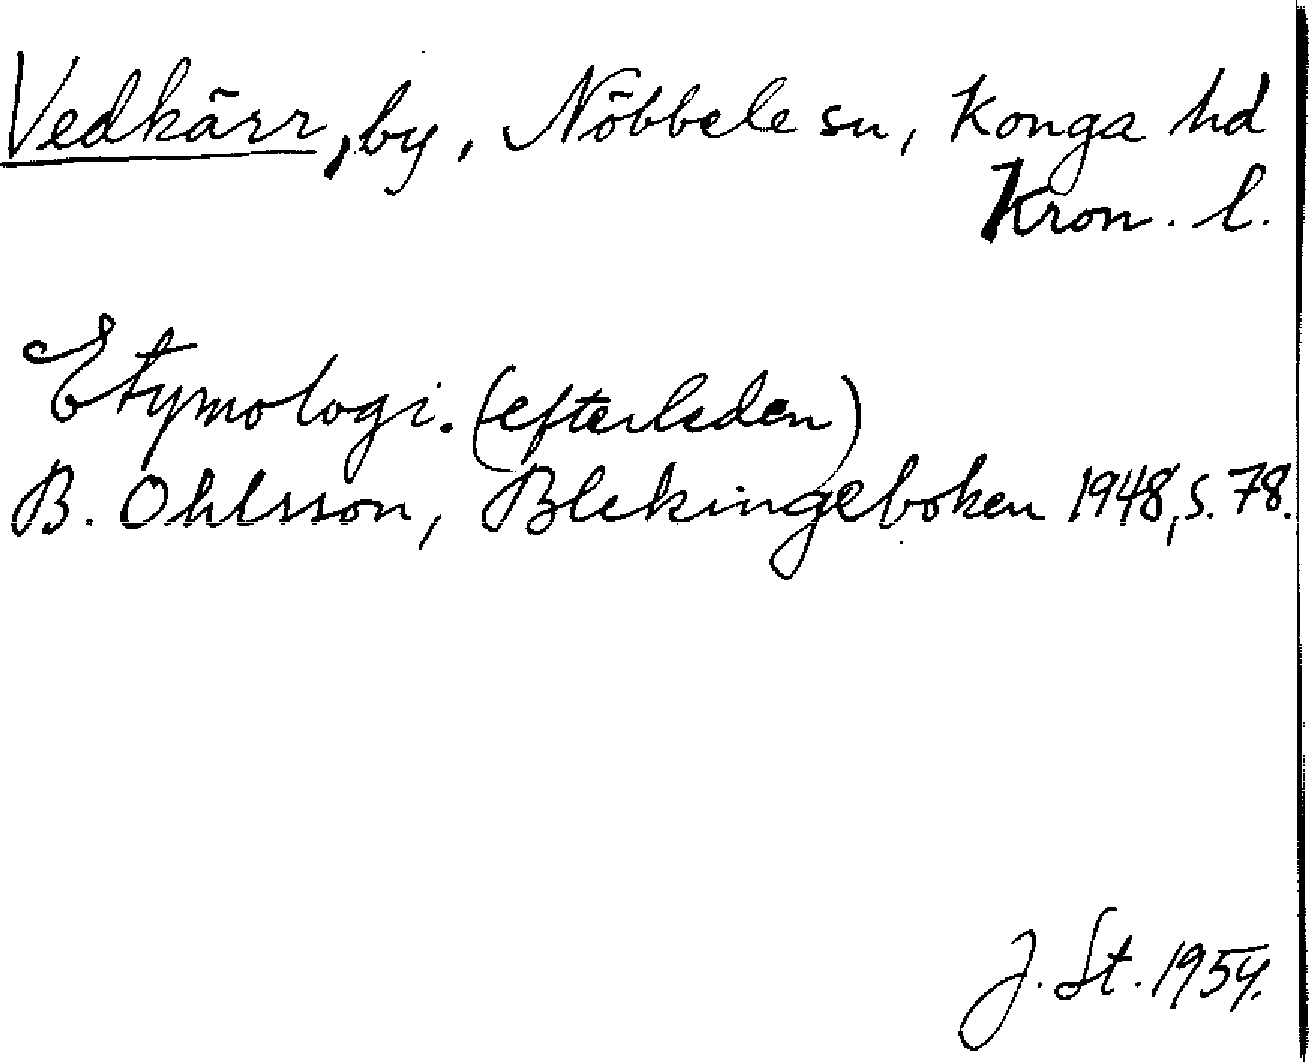 Vedkärr, by, Nöbbele sn, Konga hd
Kron. l.
Etymologi. (efterleden)
B. Ohlsson, Blekingeboken 1948, s. 78.
J. St. 1954.